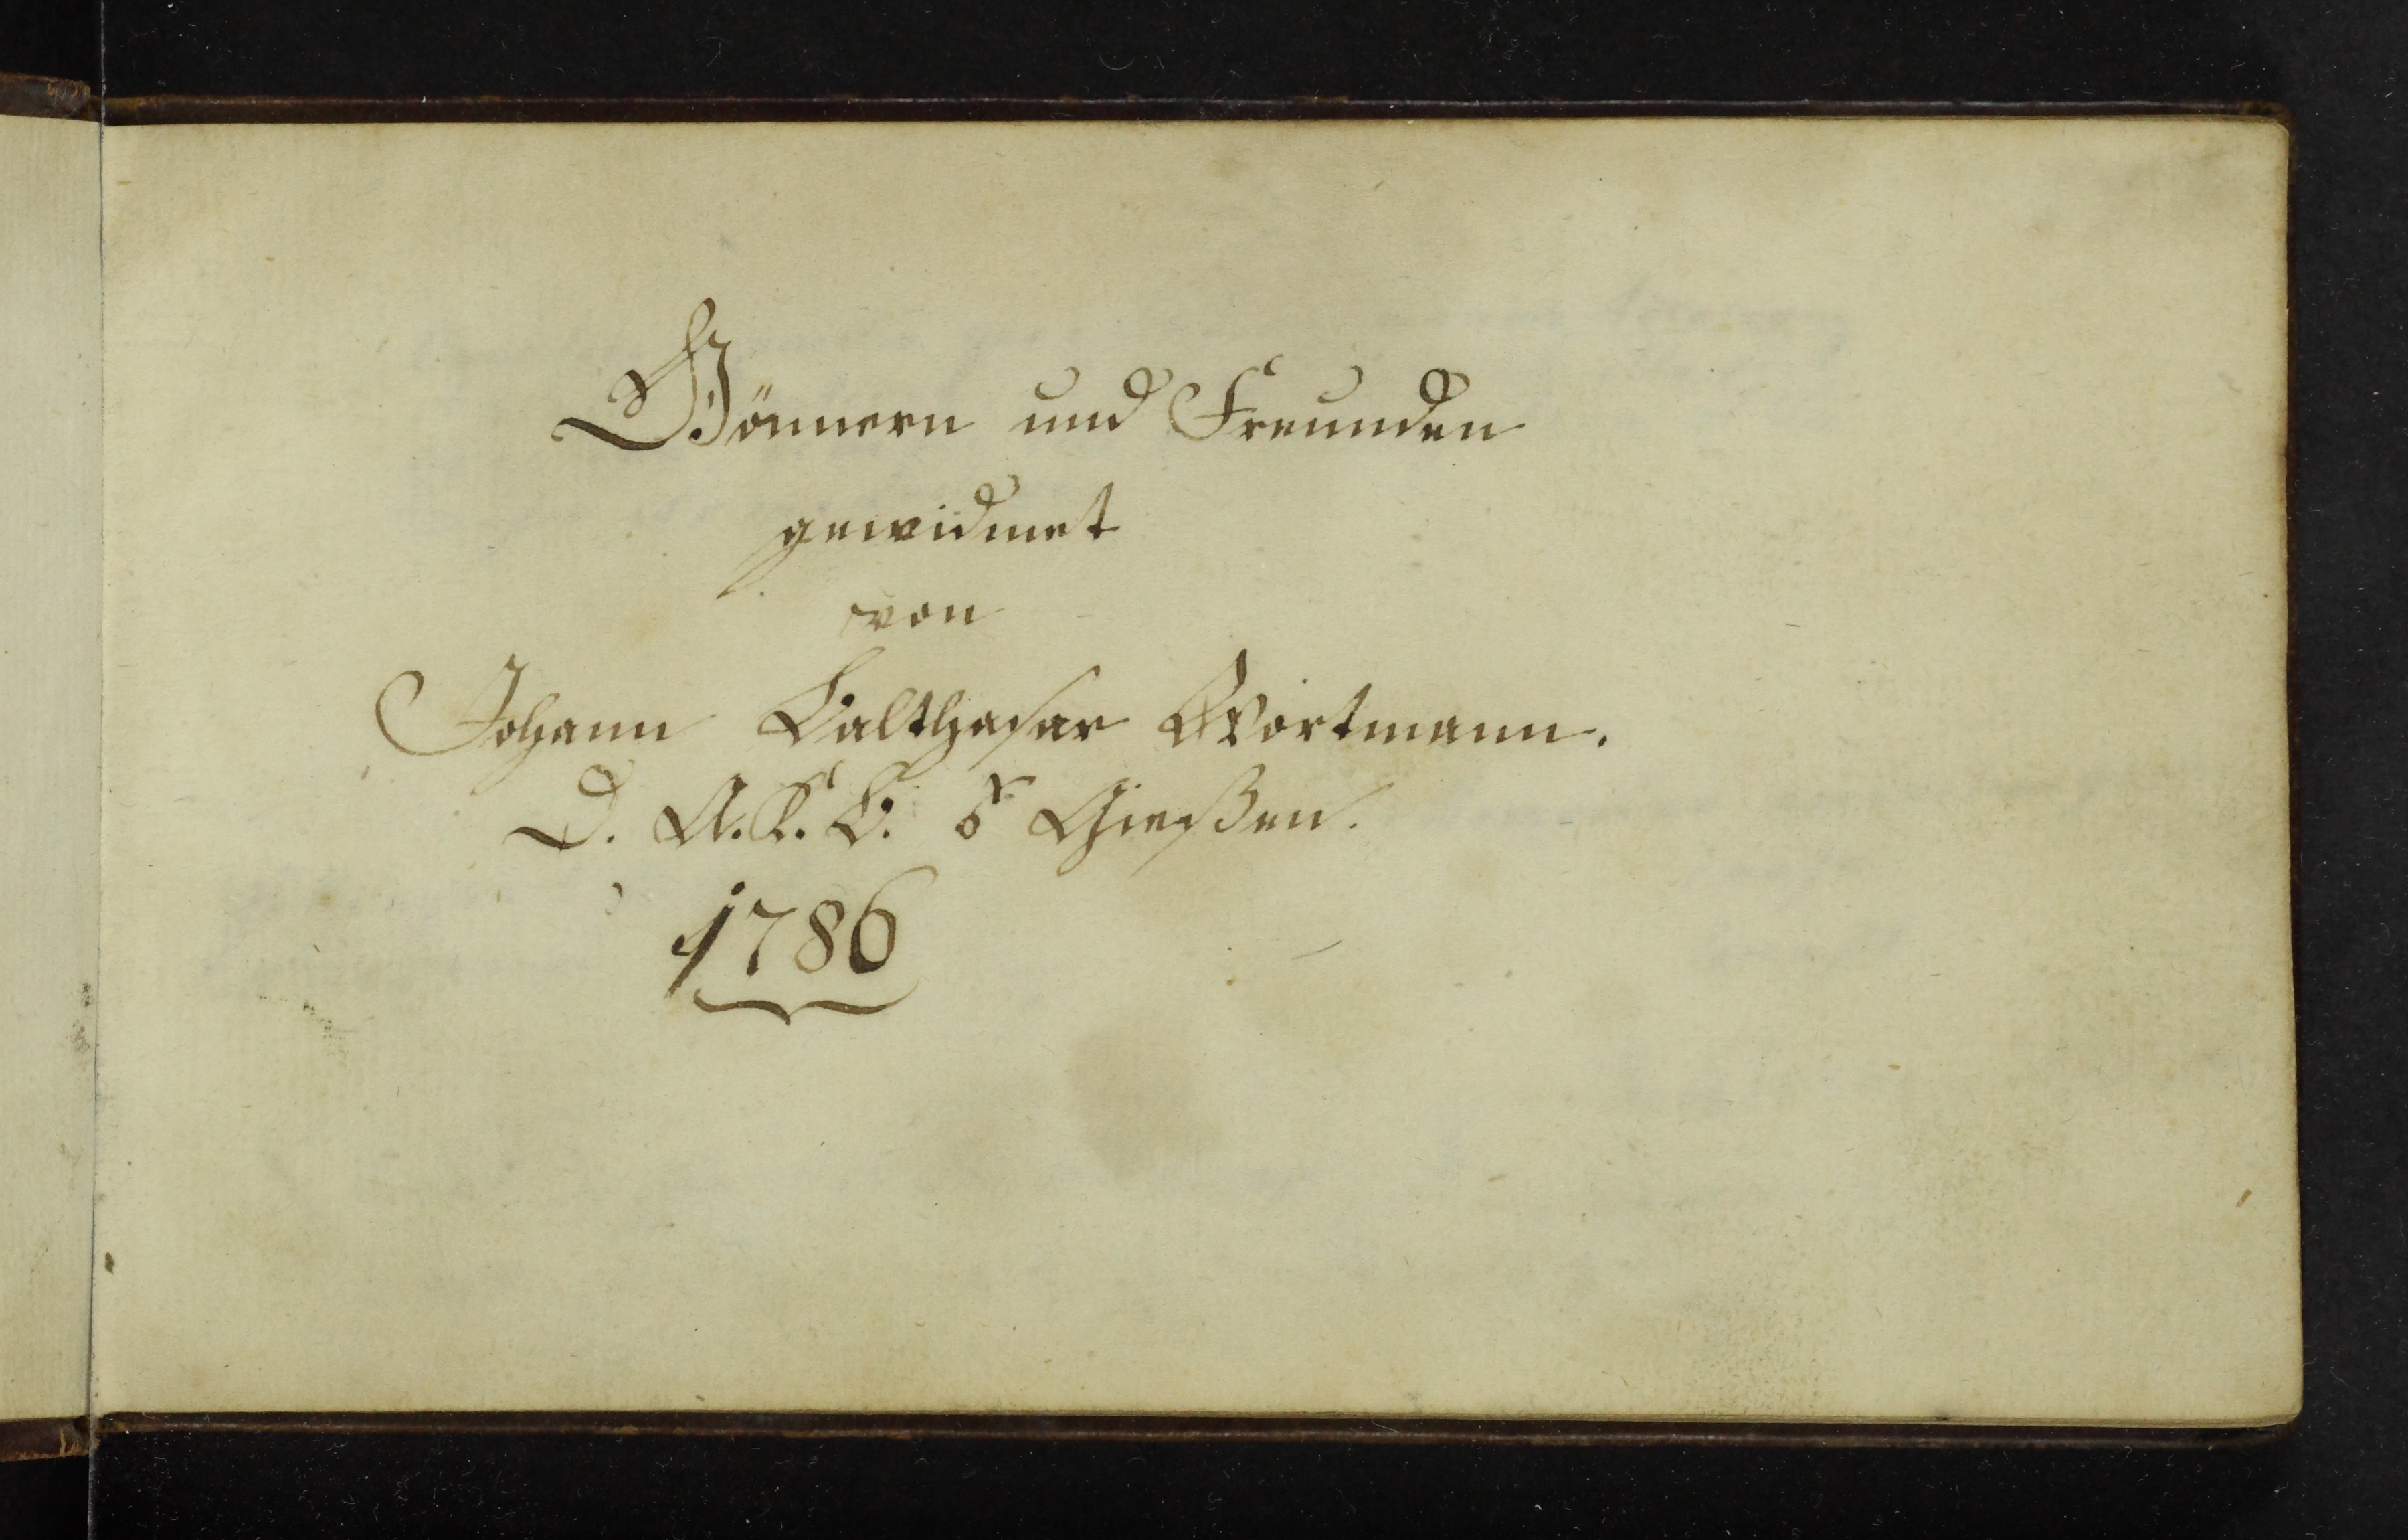 Gönnern und Freunden
gewidmet
von
Johann Balthasar Wortmann.
D. A. K. B. Gießen.
1786